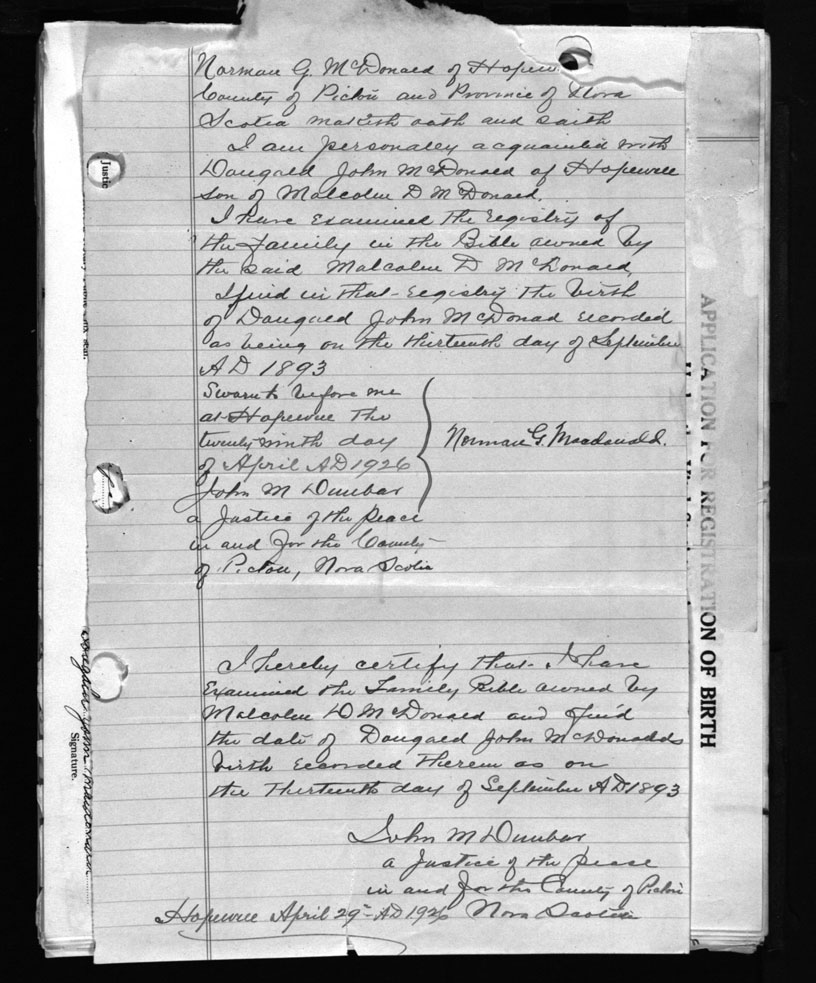 Norman G. McDonald of Hopew
County of Pictou and Province of Nova
Scotia maketh oath and saith
I am personally acquainted with
Dougald John McDonald of Hopewell
son of Malcolm D McDonald.
I have examined the registry of
the family in the Bible owned by
the said Malcolm D McDonald,
I find in that registry the birth
of Dougald John McDonad recorded
as being on the thirteenth day of September
AD 1893
Sworn to before me
at Hopewell the
twenty ninth day
of April AD 1926
John M Dunbar
a Justice of the peace
in and for the County
of Pictou, Nova Scotia
Norman G. Macdonald.
I hereby certify that I have
examined the Family Bible owned by
Malcolm D McDonald and find
the date of Dougald John McDonalds
birth recorded therein as on
the thirteenth day of September AD 1893
John M Dunbar
a Justice of the peace
in and for the County of Pictou
Hopewell April 29th AD 1926 Nova Scotia
Justic
Signature.
APPLICATION FOR REGISTRATION OF BIRTH